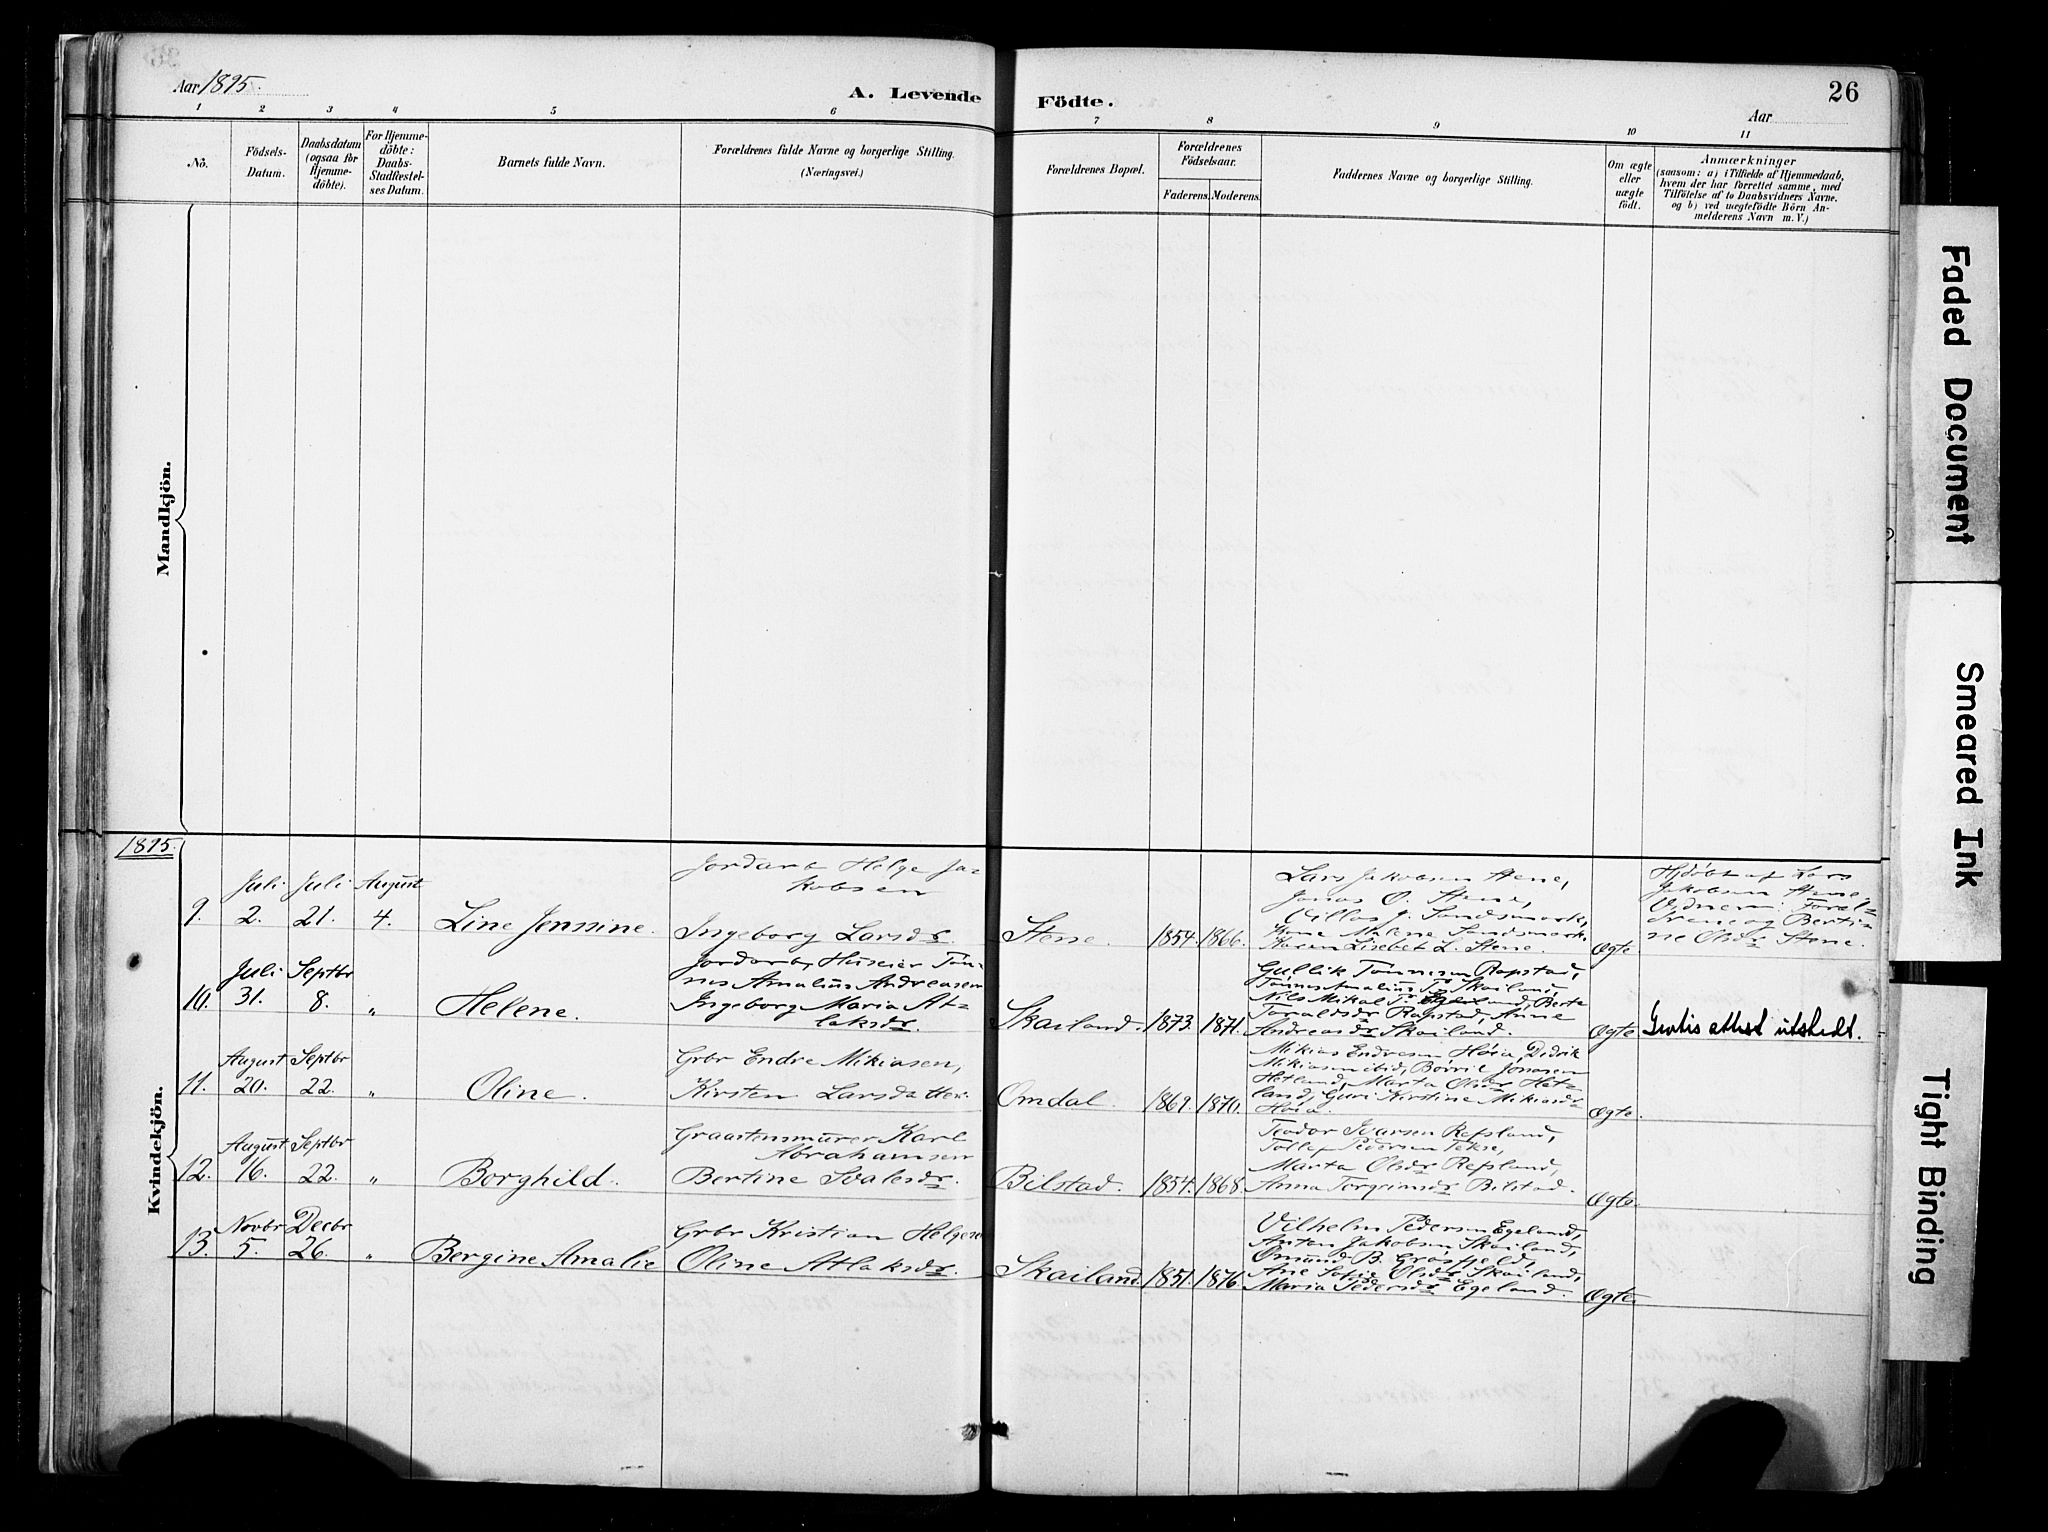 Aar 1895.
A. Levende Födte.
Aar
26
1 2 3 4 5 6 7 8 9 10 11
No.
Födsels-Datum.
Daabsdatum (ogsaa for Hjemme-döbte).
For Hjemme-döbte: Daabs-Stadfæstel-ses Datum.
Barnets fulde Navn.
Forældrenes fulde Navne og borgerlige Stilling. (Næringsvei.)
Forældrenes Bopæl.
Forældrenes Födselsaar.
Faderens. Moderens.
Faddernes Navne og borgerlige Stilling.
Om ægte eller uægte födt.
Anmærkninger
(saasom: a) i Tilfælde af Hjemmedaab,
hvem der har forrettet samme, med
Tilföielse af to Daabsvidners Navne.
og b) ved uægtefödte Börn An-
melderens Navn m. V.)
Mandkjön.
1895.
Kvindekjön.
9. Juli 2. Juli 21. August 4. Line Jenssine.
Jordarb Helge Ja-
kobsen
Ingeborg Larsdr.
Stene. 1854. 1866.
Lars Jakobsen Stene,
Jonas O. Stene,
Villas J. Sandsmark,
Malene Sandsmark,
Karen Lisebet L. Stene.
Ægte.
Hjdöbt af Lars
Jakobsen Stene,
Vidner: Foræl-
drene og Berti-
ne Olsdr Stene.
10. Juli 31. Septbr 8. " Helene.
Jordarb, Huseier Tøn-
nes Amalius Andreasen
Ingeborg Maria At-
laksdr.
Skailand. 1873. 1871.
Gullik Tønnesen Rapstad,
Tønnes Amalius T. Skailand,
Nils Mikal T. Egeland, Berte
Toraldsdr Rapstad, Anne
Andreasdr Skailand.
Ægte.
Gratis attest utstedt.
11. August 20. Septbr 22. " Oline.
Grbr Endre Mikiasen,
Kirsten Larsda
Omdal. 1869. 1870.
Mikias Endresen Høia, Didrik
Mikiasen ibid, Børril Jonasen
Hetland, Marta Olsdr Het-
land, Guri Kirstine Mikiasdr
Høia.
Ægte.
12. August 16. Septbr 22. " Borghild.
Graastensmurer Karl
Abrahamsen
Bertine Svalesdr.
Bilstad. 1854. 1868.
Teodor Ivarsen Refsland,
Tollef Pedersen Tekse,
Marta Olsdr Refsland,
Anna Torgrimsdr Bilstad.
Ægte.
13. Novbr 5. Decbr 26. " Bergine Amalie
Grbr Kristian Helgesen
Oline Atlaksdr.
Skailand. 1851. 1876.
Vilhelm Pedersen Egeland,
Anton Jakobsen Skailand,
Omund B. Grøsfjeld,
Ane Sofie Olsdr Skailand,
Maria Pedersdr Egeland.
Ægte.
Faded Document
Smeared Ink
Tight Binding